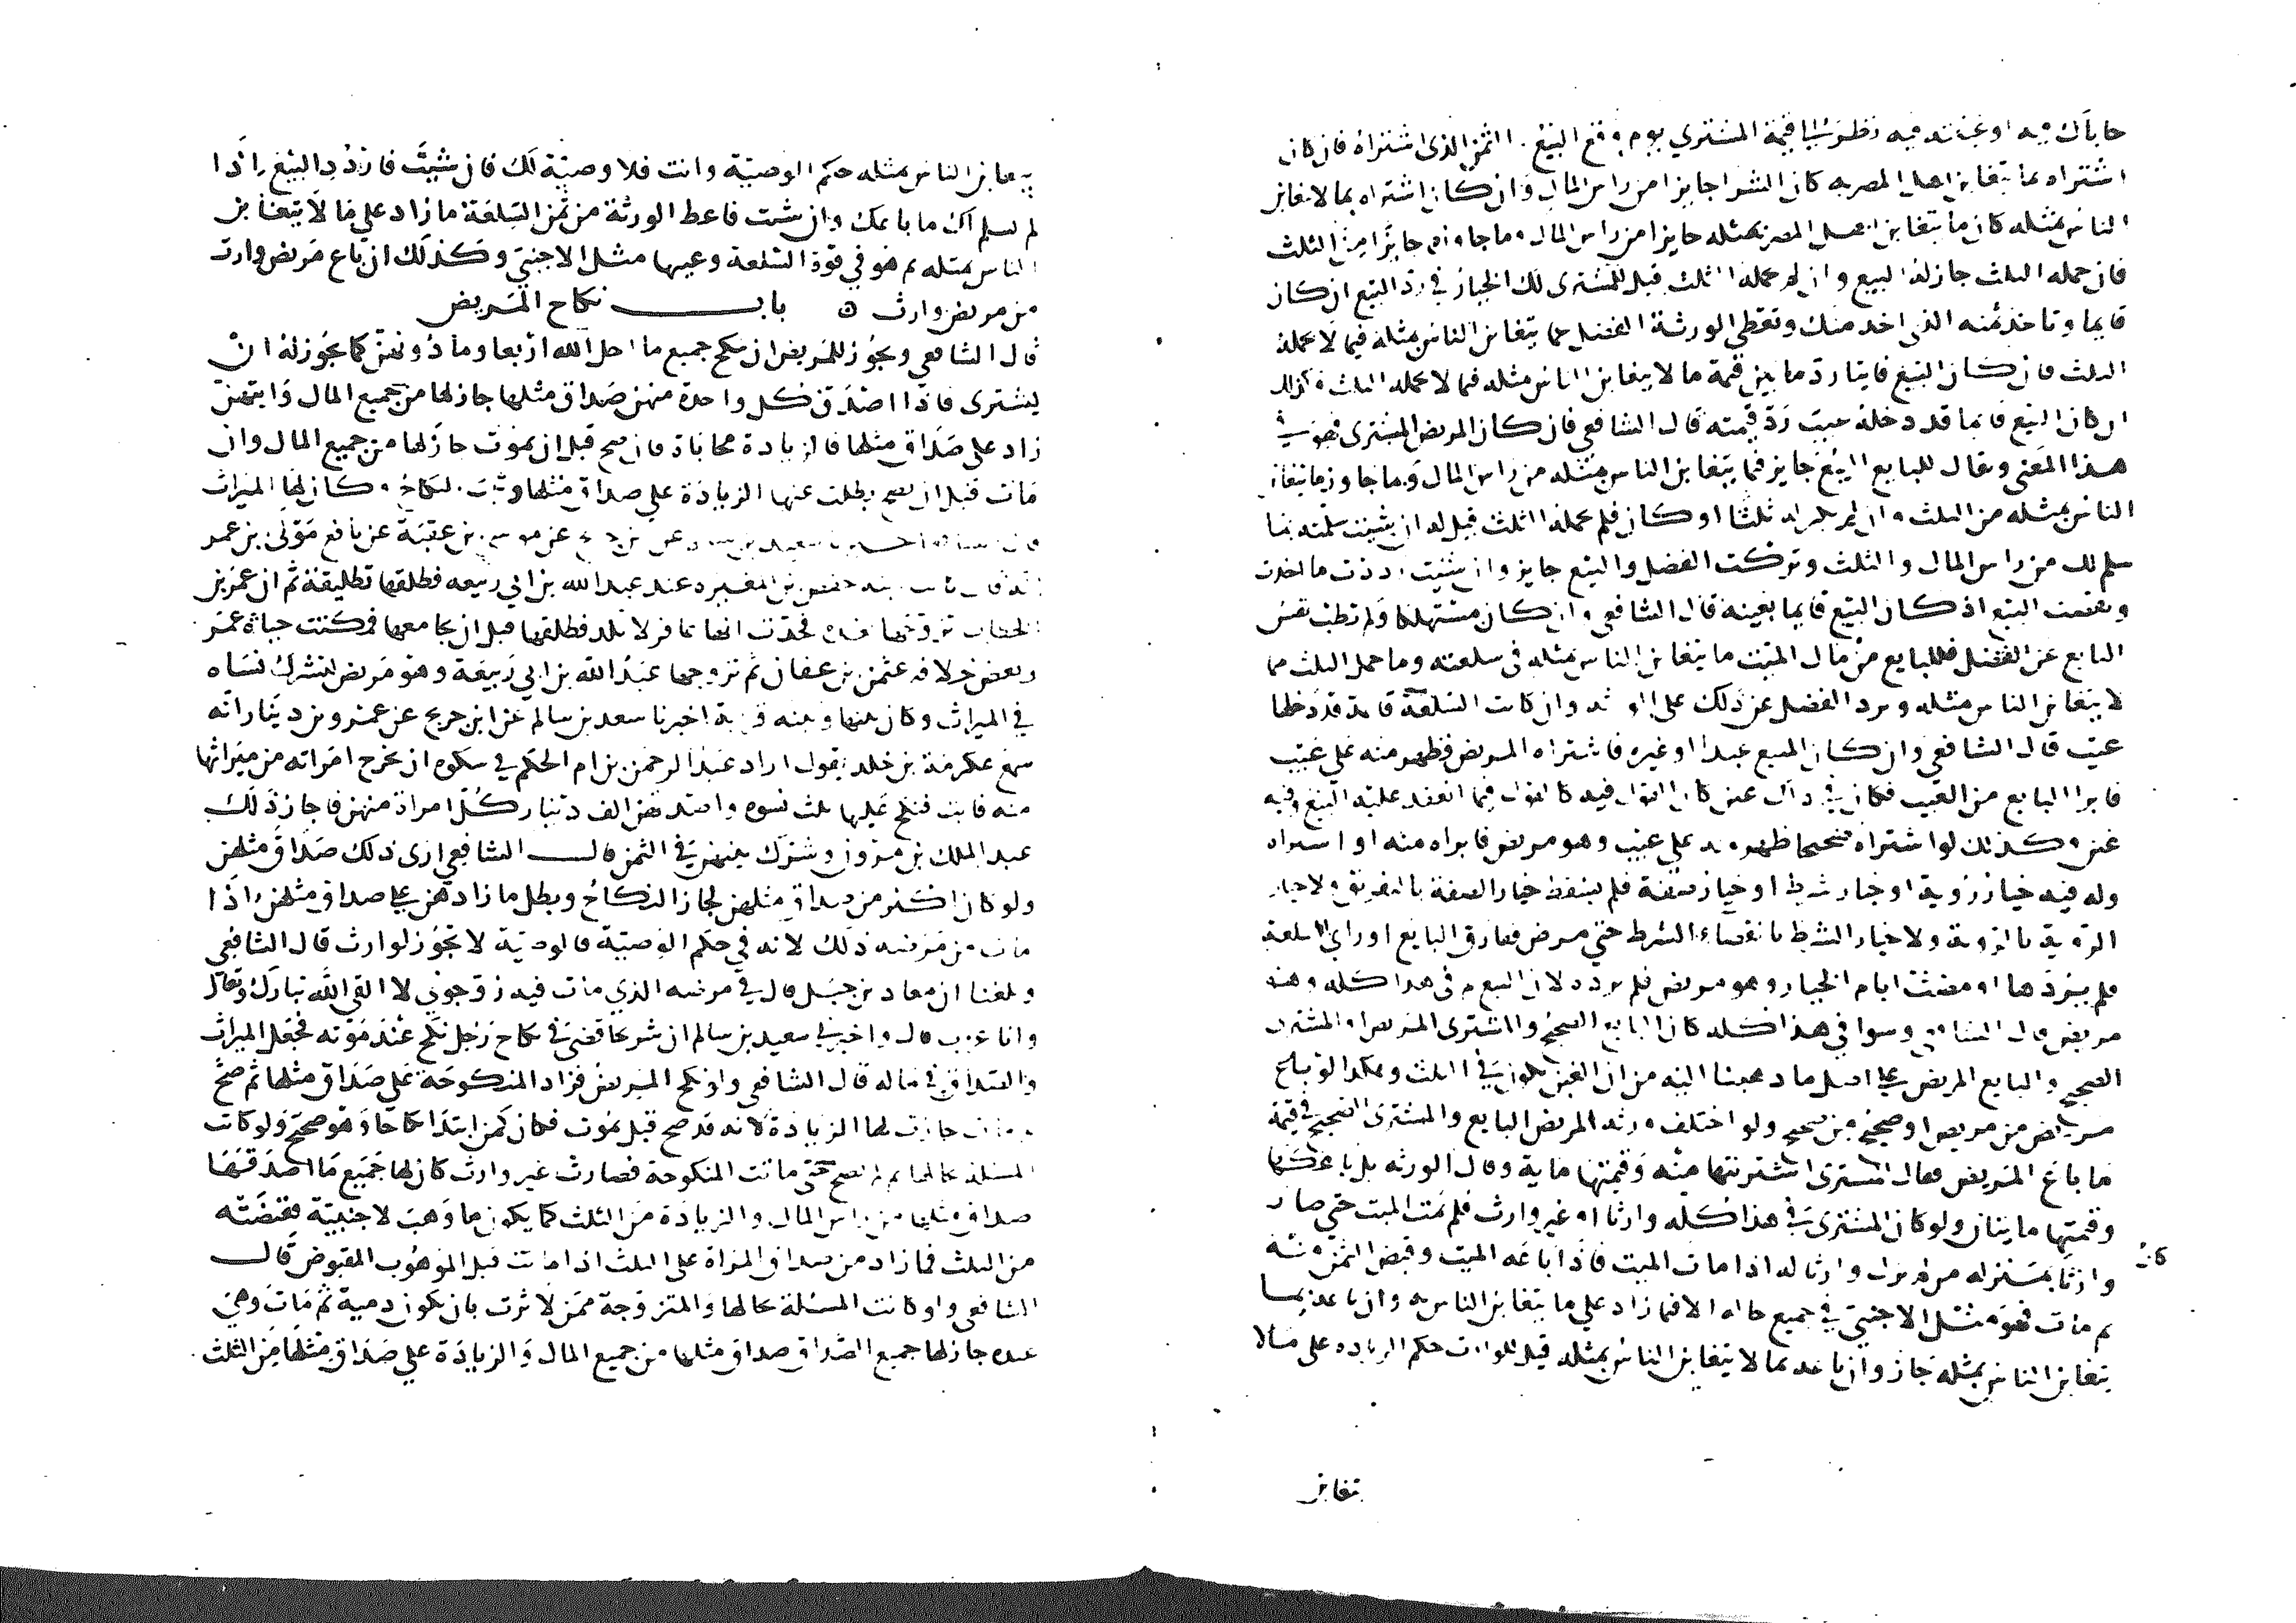 حاباك فيه او غبنته فيه نظرت الى قيمة المشتري يوم وقع البيع والثمن الذي اشتراه فان كان
اشتراه بما يتغابن اهل المصر به كان الشرا جايزا من راس المال وان كان اشتراه بما لا يتغابن
الناس بمثله كان ما يتغابن اهل المصر بمثله جايزا من راس المال وما جاوزه جايزا من الثلث
فان حمله الثلث جاز له البيع وان لم يحمله الثلث قيل للمشتري لك الخيار في رد البيع ان كان
قايما وتاخذ ثمنه الذي اخذ منك وتعطي الورثة الفضل عما يتغابن الناس بمثله فيما لا يحمله
الثلث فان كان البيع فايتا رد ما بين قيمة ما لا يتغابن الناس بمثله فيما لا يحمله الثلث وكذلك
ان كان البيع قايما قد دخله عيب رد قيمته قال الشافعي فان كان المريض المشتري فهو في
هذا المعنى ويقال للبايع البيع جايز فيما يتغابن الناس بمثله من راس المال وما جاوز ما يتغابن
الناس بمثله من الثلث وان لم يكن له ثلث او كان فلم يحمله الثلث قيل له ان شيت سلمته بما
سلم لك من راس المال والثلث وتركت الفضل والبيع جايز وان شيت رددت ما اخذت
ونقضت البيع اذ كان البيع قايما بعينه قال الشافعي وان كان مستهلكا ولم تطب نفس
البايع عن الفضل فللبايع من مال الميت ما يتغابن الناس بمثله في سلعته وما حمل الثلث مما
لا يتغابن الناس بمثله ويرد الفضل عن ذلك على الورثة وان كانت السلعة قايمة قد دخلها
عيب قال الشافعي وان كان المبيع عبدا او غيره فاشتراه المريض فظهر منه على عيب
فابرا البايع من العيب فكان في ذلك غبن كان القول فيه كالقول فيما انعقد عليه البيع وفيه
غبن وكذلك لو اشتراه صحيحا ظهر منه على عيب وهو مريض فابراه منه او اشتراه
وله فيه خيار رؤية او خيار شرط او خيار صفقة فلم ينقطع خيار الصفقة بالتفريق ولا خيار
الرؤية بالرؤية ولا خيار الشرط بانقضاء الشرط حتى مرض ففارق البايع او راى السلعة
فلم يردها او مضت ايام الخيار وهو مريض فلم يرده لان البيع تم في هذا كله وهو
مريض قال الشافعي وسوا في هذا كله كان البايع الصحيح والمشتري المريض او المشتري
الصحيح والبايع المريض على اصل ما ذهبنا اليه من ان الغبن يكون في الثلث وهكذا لو باع
مريض من مريض او صحيح من صحيح ولو اختلف ورثة المريض البايع والمشتري الصحيح في قيمة
ما باع المريض فقال المشتري اشتريتها منه وقيمتها ماية وقال الورثة بل باعكها
وقيمتها مايتان ولو كان المشتري في هذا كله وارثا او غير وارث فلم يمت الميت حتى صار
وارثا بمنزلة من لم يزل وارثا له اذا مات الميت فاذا باعه الميت وقبض الثمن منه
كان
ثم مات فهو مثل الاجنبي في جميع حاله الا فيما زاد على ما يتغابن الناس به وان باعه بما
يتغابن الناس بمثله جاز وان باعه بما لا يتغابن الناس بمثله قيل للوارث حكم الزيادة على ما لا
يتغابن
يتغابن الناس بمثله حكم الوصية وانت فلا وصية لك فان شيت فاردد البيع اذا
لم يسلم لك ما باعك وان شيت فاعط الورثة من ثمن السلعة ما زاد على ما لا يتغابن
الناس بمثله ثم هو في فوت السلعة وعيبها مثل الاجنبي وكذلك ان باع مريض وارث
من مريض وارث ه باب نكاح المريض
قال الشافعي ويجوز للمريض ان ينكح جميع ما احل الله اربعا وما دونهن كما يجوز له ان
يشتري فاذا اصدق كل واحدة منهن صداق مثلها جاز لها من جميع المال وايتهن
زاد على صداق مثلها فالزيادة محاباة فان صح قبل ان يموت جاز لها من جميع المال وان
مات قبل ان يصح بطلت عنها الزيادة على صداق مثلها وثبت النكاح وكان لها الميراث
قال الشافعي اخبرنا سعيد بن سالم عن ابن جريج عن موسى بن عقبة عن نافع مولى بن عمر
انه قال كانت ابنة حفص بن المغيرة عند عبد الله بن ابي ربيعه فطلقها تطليقة ثم ان عمر بن
الخطاب تزوجها بعده فحدث انها عاقر لا تلد فطلقها قبل ان يجامعها فمكثت حياة عمر
وبعض خلافة عثمن بن عفان ثم تزوجها عبد الله بن ابي ربيعة وهو مريض لتشرك نساه
في الميراث وكان بينها وبينه قرابة اخبرنا سعيد بن سالم عن ابن جريج عن عمرو بن دينار انه
سمع عكرمة بن خلد يقول اراد عبد الرحمن بن ام الحكم في شكوه ان يخرج امراته من ميراثها
منه فابت فنكح عليها ثلث نسوه واصدقهن الف دينار كل امراة منهن فاجاز ذلك
عبد الملك بن مروان وشرك بينهن في الثمن قال الشافعي ارى ذلك صداق مثلهن
ولو كان اكثر من صداق مثلهن لجاز النكاح وبطل ما زادهن على صداق مثلهن اذا
مات من مرضه ذلك لانه في حكم الوصية والوصية لا تجوز لوارث قال الشافعي
وبلغنا ان معاذ بن جبل قال في مرضه الذي مات فيه زوجوني لا القى الله تبارك وتعالى
وانا عزب قال واخبرني سعيد بن سالم ان شريحا قضى في نكاح رجل نكح عند موته فجعل الميراث
والصداق في ماله قال الشافعي وان نكح المريض فزاد المنكوحة على صداق مثلها ثم صح
ثم مات جازت لها الزيادة لانه قد صح قبل يموت فكان كمن ابتدا نكاحا وهو صحيح ولو كانت
المسئلة بحالها ثم لم يصح حتى ماتت المنكوحة فصارت غير وارث كان لها جميع ما اصدقها
صداق مثلها من راس المال والزيادة من الثلث كما يكون ما وهب لاجنبية فقبضته
من الثلث فما زاد من صداق المراة على الثلث اذا ماتت مثل الموهوب المقبوض قال
الشافعي ولو كانت المسئلة بحالها والمتزوجة ممن لا ترث بان تكون ذمية ثم مات وهي
عنده جاز لها جميع الصداق صداق مثلها من جميع المال والزيادة على صداق مثلها من الثلث